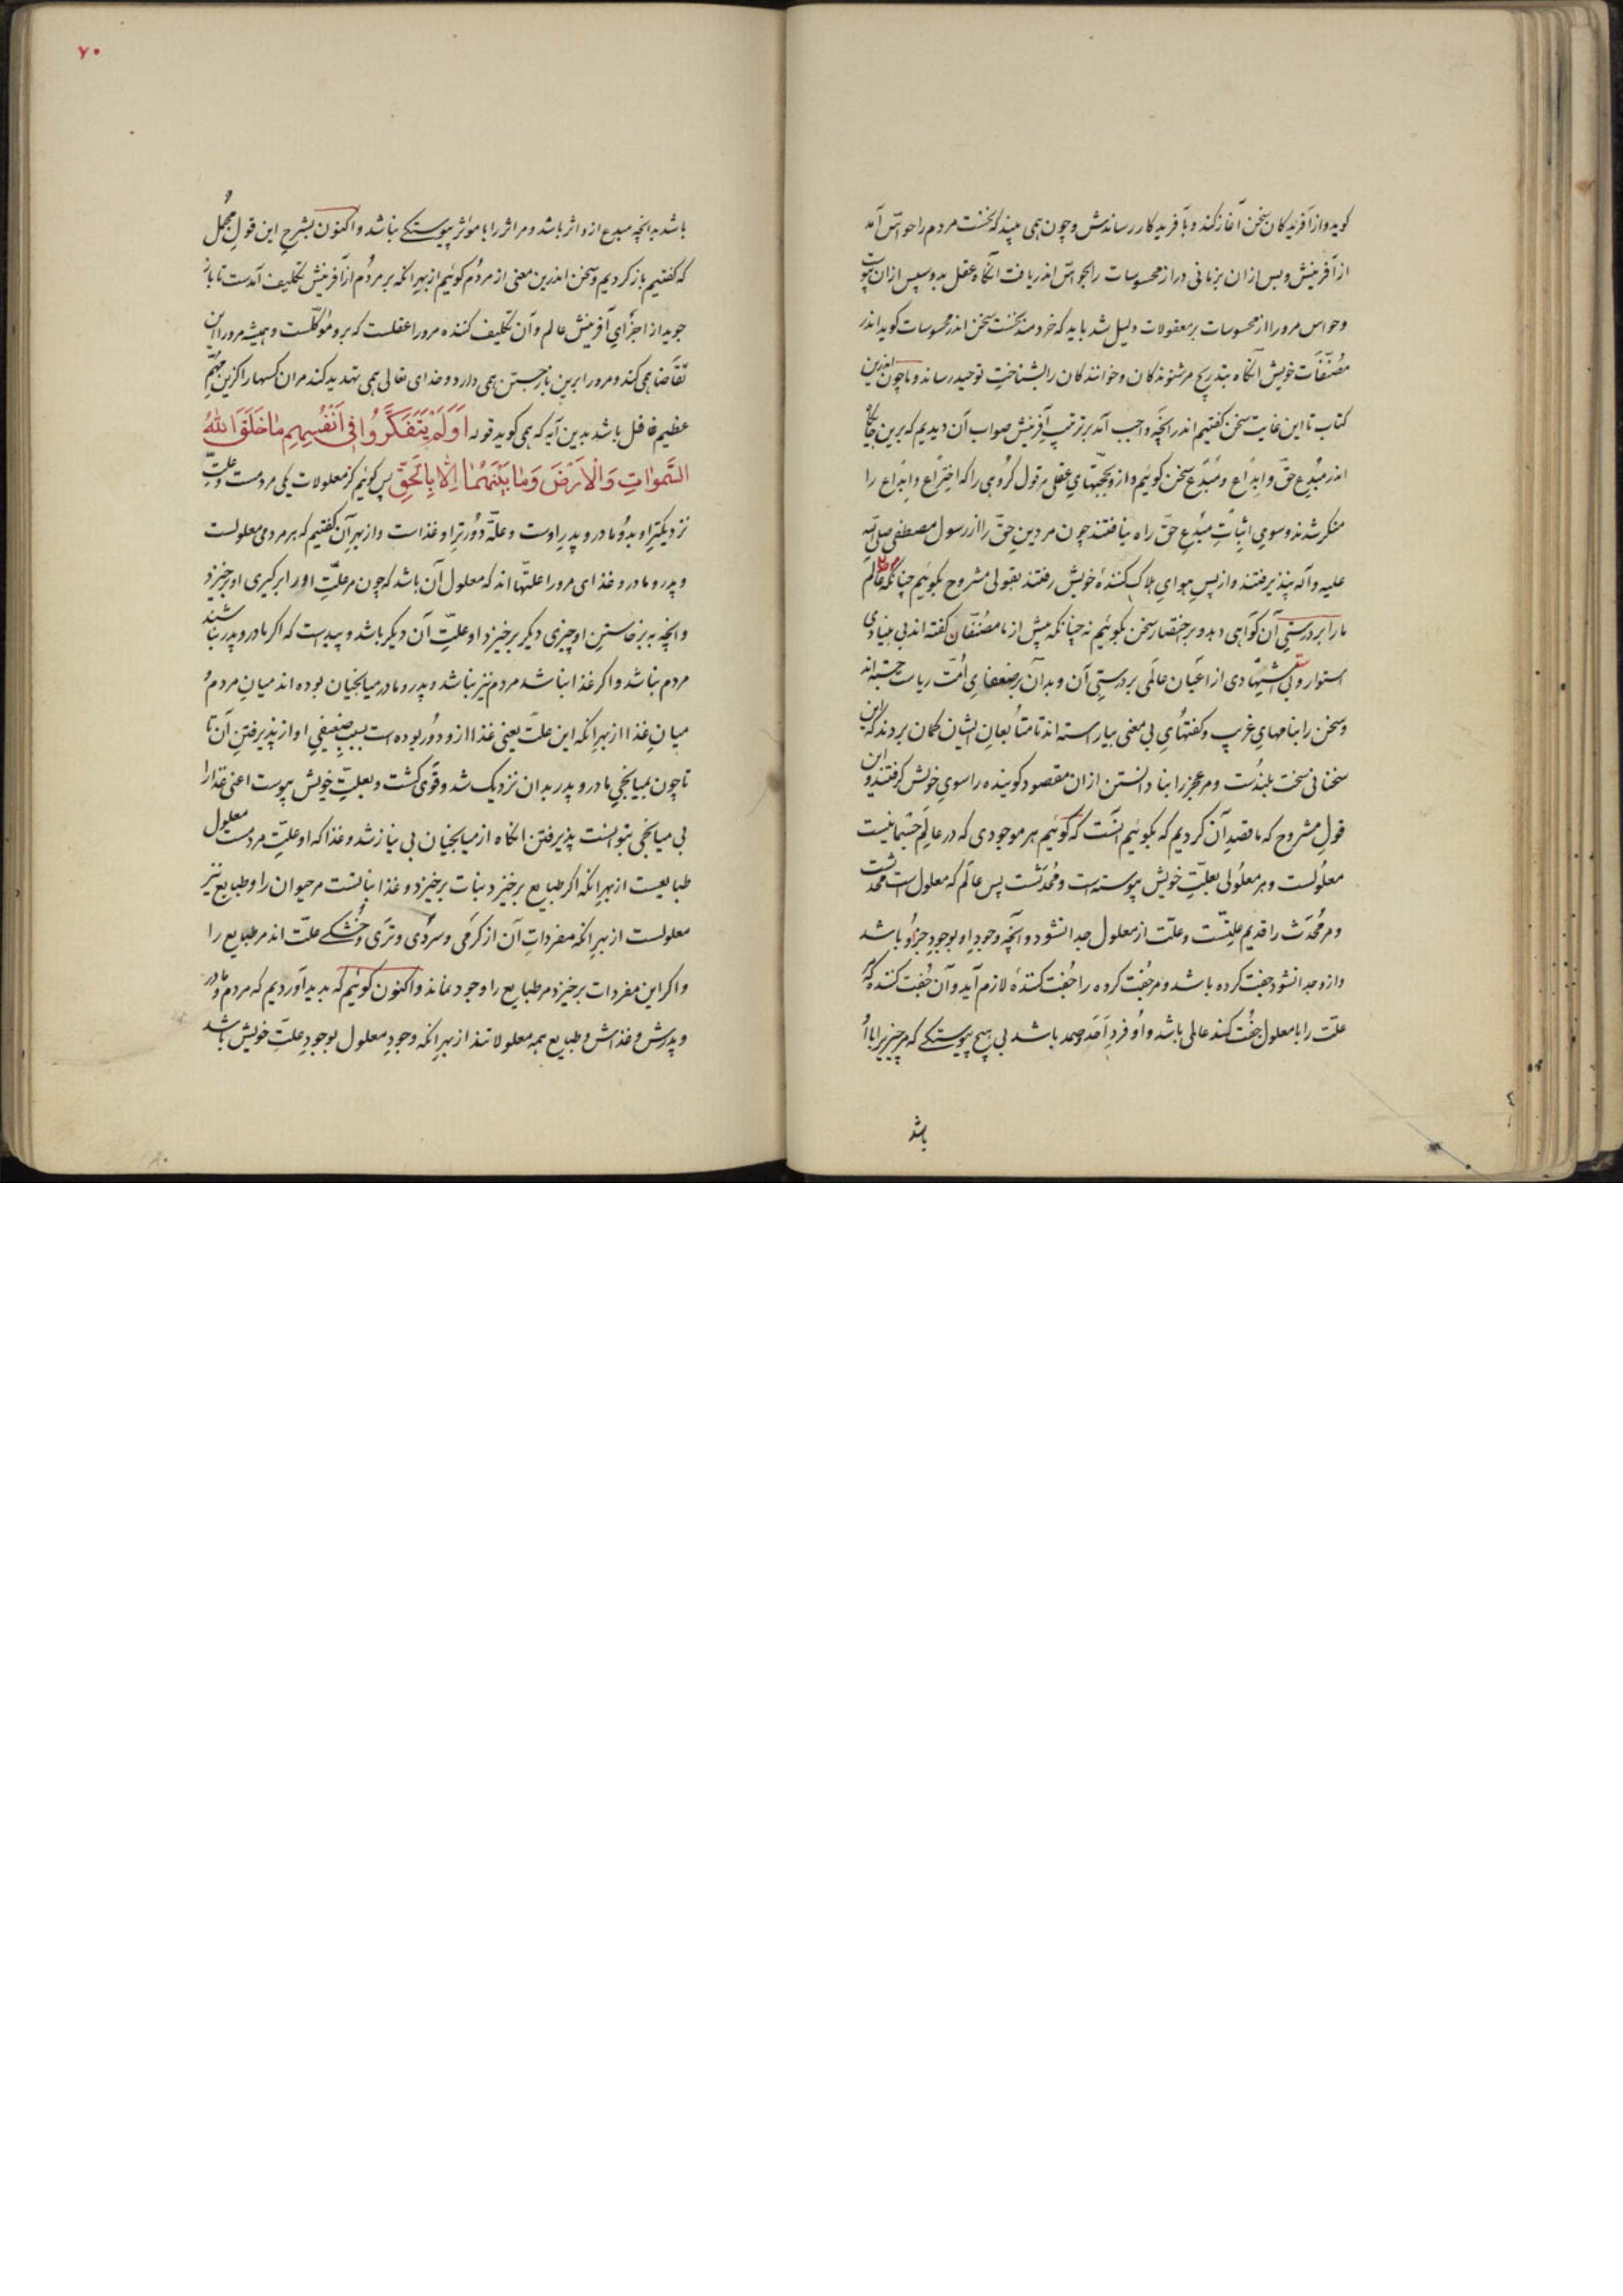 گوید و از آفریدگان سخن آغاز کند و بآفریدگار رساندش و چون همی بیند که نخست مردم را حواسّ آمد
از آفرینش و پس از آن بزمانی دراز محسوسات را بحواسّ اندر یافت آنگاه عقل بدو سپس از آن پیوست
و حواس مرو را از محسوسات بر معقولات دلیل شد باید که خردمند نخست سخن اندر محسوسات کوید اندر
مُصنّفات خویش آنگاه بتدریج مر شنوندکان و خوانندکان را بشناختِ توحید رساند و ما چون اندرین
کتاب تا این غایت سخن کفتیم اندر آنچه واجب آمد بر ترتیبِ آفرینش صواب آن دیدیم که برین جایگاه
اندر مُبدِع حقّ و ابداع و مُبدَع سخن کوئیم و از و بحجّتهایِ عقلی مر قول کروهی را که اختراع و ابداع را
منکر شدند و سویِ اثباتِ مبدِعِ حقّ راه نیافتند چون مر دینِ حقّ را از رسول مصطفی صلی الله
علیه و آله نپذیرفتند و از پسِ هوایِ هلاک کنندۀ خویش رفتند بقولی مشروح بکوئیم چنانکه عالم
ما را بر درستیِ آن کواهی دهد و بر اختصار سخن بکوئیم نه چنانکه پیش از ما مصنّفان کفته‌اند بی بنیادی
استوار و بی استشهادی از اعیان عالَمی بر درستیِ آن و بدآن بر ضعفایِ امّت ریاست جسته‌اند
و سخن را بنامهایِ غریب و کفتهایِ بی معنی بیاراسته‌اند تا متابعانِ ایشان کمان بردند که این
سخنانی سخت بلندست و مر عجز را بنادانستن از ان مقصود کوینده را سویِ خویش کرفتند و این
قولِ مشروح که ما قصدِ آن کردیم که بکوئیم آنست که کوئیم هر موجودی که در عالمِ جسمانیست
معلولست و هر معلولی بعلّتِ خویش پیوسته است و مُحدَثست پس عالَم که معلول است محدثست
و مر مُحدَث را قدیم علّتست و علّت از معلول جدا نشود و آنچه وجودِ او بوجودِ جزاو باشد
و از و جدا نشود جفت کرده باشد و مر جُفت کرده را جُفت کنندۀ لازم آید و آن جُفت کننده که
علّت را با معلول جفُت کند عالی باشد و او فردِ اَحَد و صمد باشد بی هیچ پیوستگی که مر چیزیرا با او
باشد
۷۰
باشد بدانچه مبدع از و اثر باشد و مر اثر را با مؤثر پیوستگی نباشد و اکنون بشرحِ این قولِ مجُمل
که کفتیم باز کردیم و سخن اندرین معنی از مردُم کوئیم از بهرِ آنکه بر مردُم از آفرینش تکلیف آمدست تا باز
جوید از اجزایِ آفرینش عالم و آن تکلیف کننده مرو را عقلست که برو موکّلست و همیشه مرو را این
تقاضا همی کند و مرو را برین باز جستن همی دارد و خدای تعالی همی تهدید کند مران کسها را کزین مهُمّ
عظیم غافل باشد بدین آیه که همی کوید قوله اَوَلَمْ یَتَفَکَّرُوا فِی اَنْفُسِهِم مَا خَلَقَ اللهُ
السَّمواتِ وَالْاَرْضَ وَمَا بَیْنَهُمَا اِلّا بِالْحَقِّ پس کوئیم کز معلولات یکی مردمست و علتِّ
نزدیکترِ او بدُو مادر و پدرِ اوست و علّة دُورترِ او غذاست و از بهرِ آن کفتیم که بر مردمی معلولست
و پدر و مادر و غذای مرو را علتّها اند که معلول آن باشد که چون مر علتِّ او را برکیری او برخیزد
و انچه به برخاستنِ او چیزی دیکر برخیزد او علتِّ آن دیکر باشد و پیداست که اکر مادر و پدر نباشند
مردم نباشد و اکر غذا نباشد مردم نیز نباشد و پدر و مادر میانجیان بوده‌اند میانِ مردم و
میانِ غذا از بهرِ آنکه این علّت یعنی غذا ازو دُور بوده است بسببِ ضعیفیِ او از پذیرفتنِ آن تا
تا چون بمیانجیِ مادر و پدر بدان نزدیک شد و قوی کشت و بعلتِّ خویش پیوست اعنی غذا را
بی میانجی بتوانست پذیرفتن انکاه از میانجیان بی نیاز شد و غذا که او علّتِ مردمست معلول
طبایعست از بهرِ آنکه اکر طبایع برخیزد نبات برخیزد و غذا نباتست مر حیوان را و طبایع نیز
معلولست از بهرِ آنکه مفرداتِ آن از کرمی و سردُی و ترَی و خُشکی علّت اند مر طبایع را
و اکر این مفردات برخیزد مر طبایع را وجود نماند و اکنون کوئیم که پدید آوردیم که مردم و مادر
و پدرش و غذاش و طبایع همه معلولاتند از بهرِ آنکه وجودِ معلول بوجودِ علّتِ خویش باشد